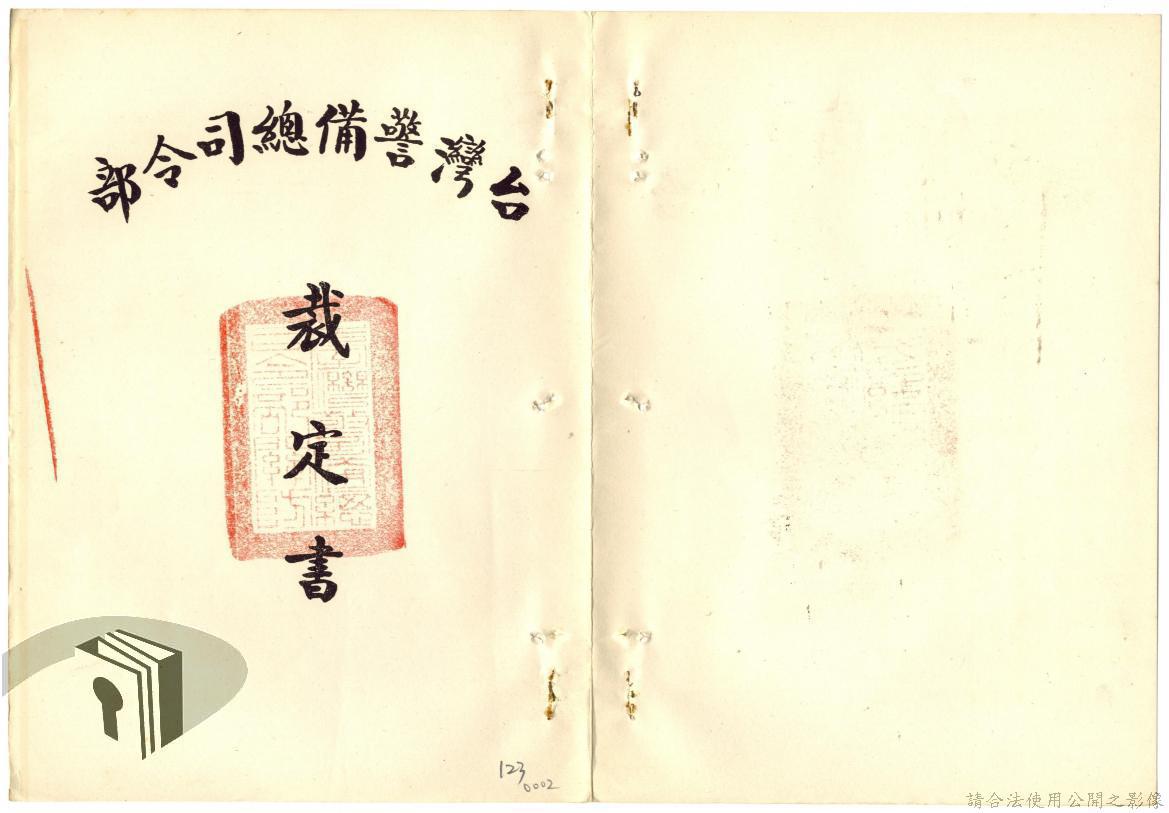 台灣警備總司令部
裁定書
123
0002
請合法使用公開之影像